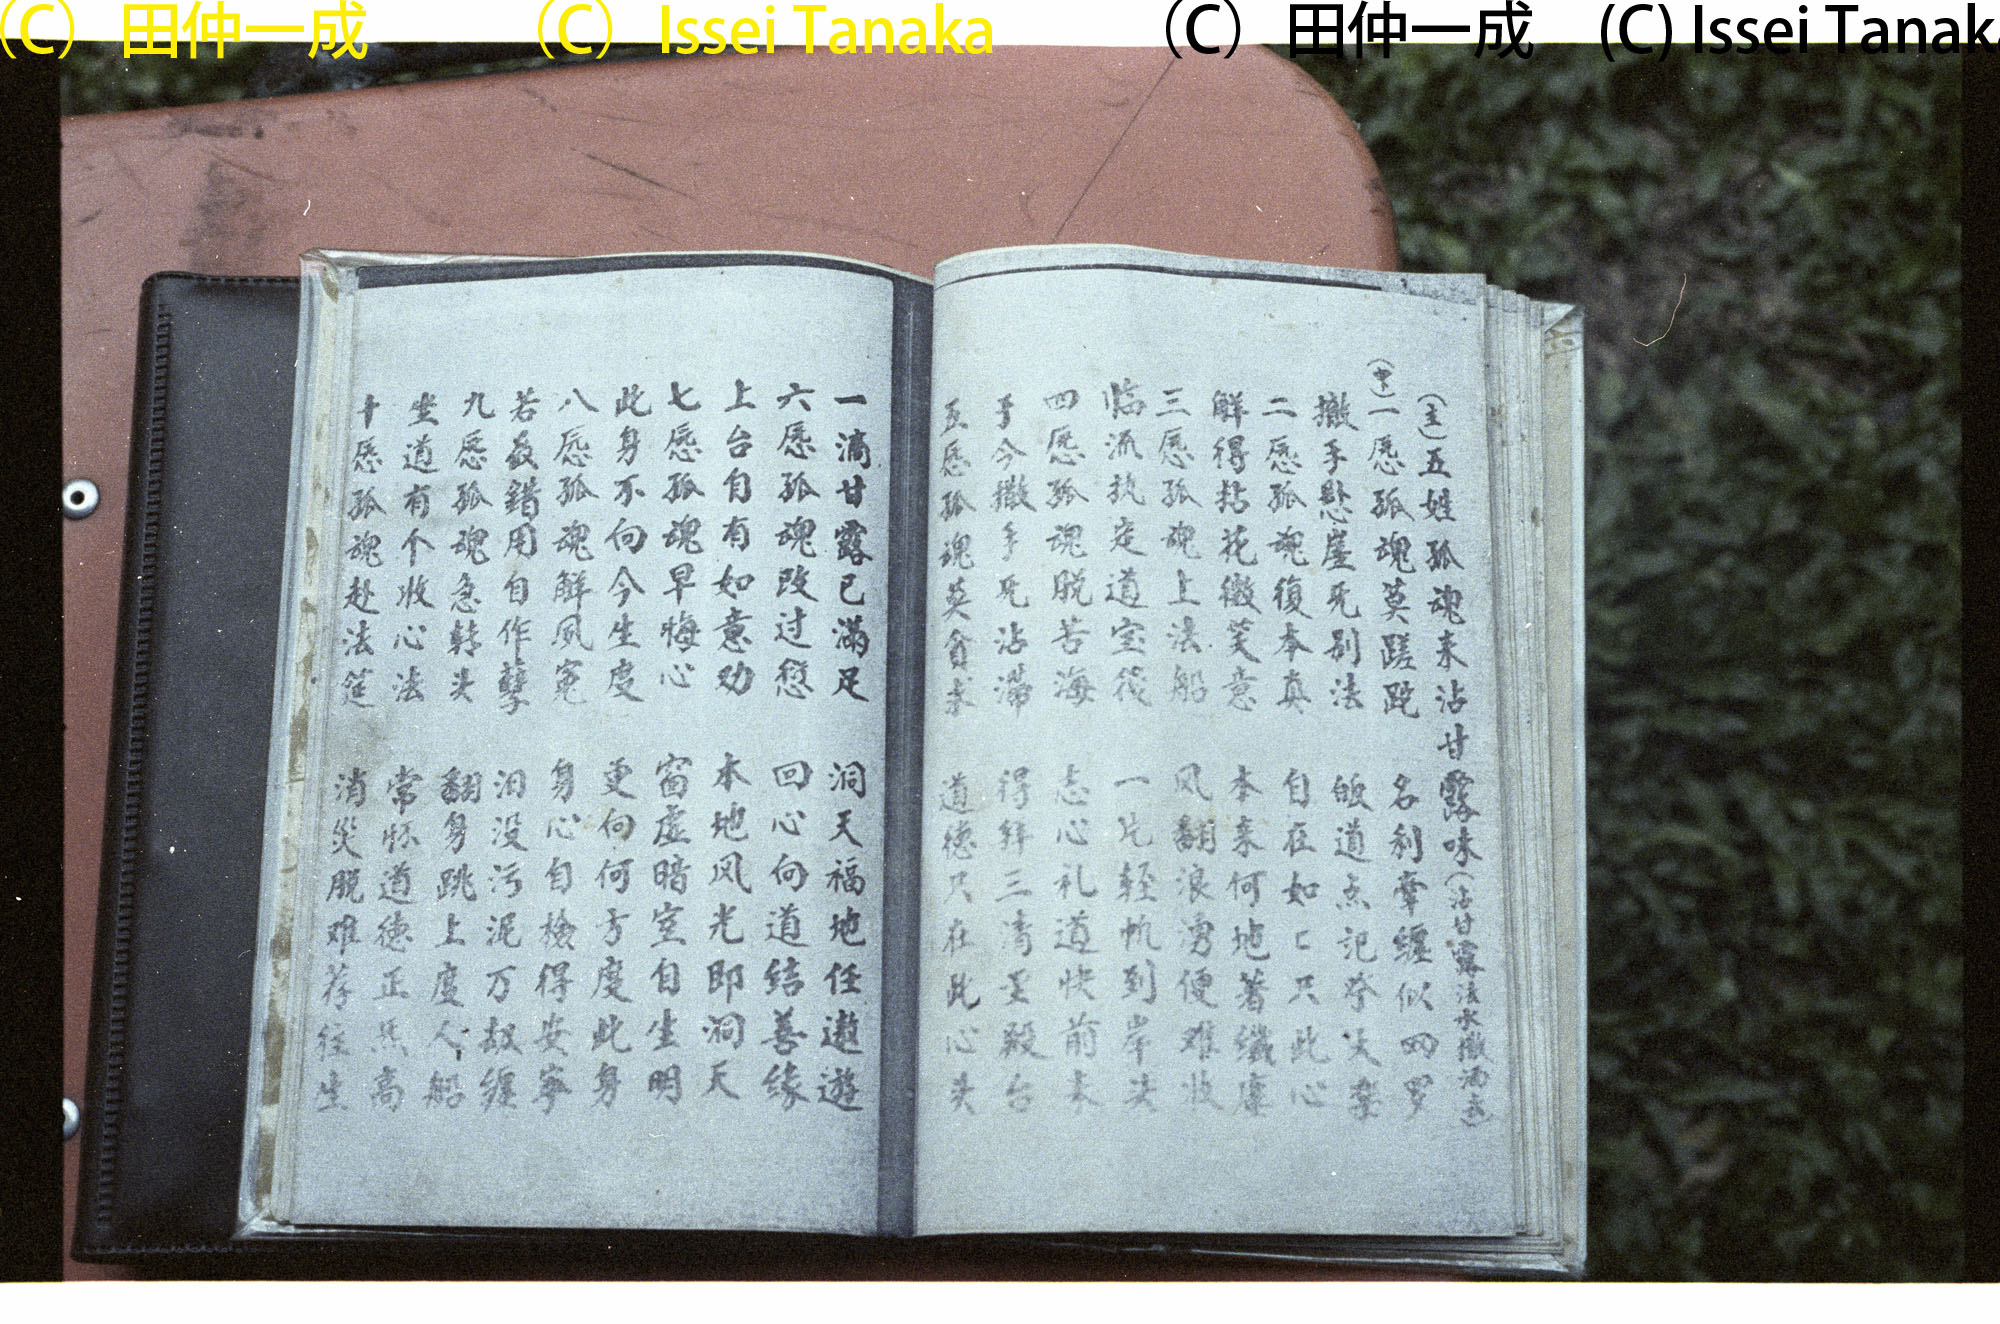 (C) 田仲一成 (C) Issei Tanaka (C) 田仲一成 (C) Issei Tanaka
(主)五姓孤魂来沾甘露味(沾甘露法水撒洒氽)
(中)一愿孤魂莫蹉跎 名利牵缠似网罗
撒手悬崖死别法 皈道点记
二愿孤魂復本真 自在如匕只此心
解得拈花微笑意 本来何地著纖塵
三愿孤魂上法船 风翻浪湧便难收
临流执定道宝筏 一片轻帆到岸头
四愿孤魂脱苦海 志心礼道快前来
于今撒手死沾滞 得拜三清圣殿台
五愿孤魂莫贪求 道德只在此心头
一滴甘露已满足 洞天福地任遨遊
六愿孤魂改过愆 回心向道结善缘
上台自有如意劝 本地风光即洞天
七愿孤魂早悔心 窗虚暗室自生明
此身不向今生度 更向何方度此身
八愿孤魂解夙冤 身心自檢得安寧
若敢錯用自作孽 汨没污泥万劫缠
九愿孤魂急转头 翻身跳上度人船
坐道有个收心法 常怀道德正气高
十愿孤魂赴法筵 消災脱难荐往生